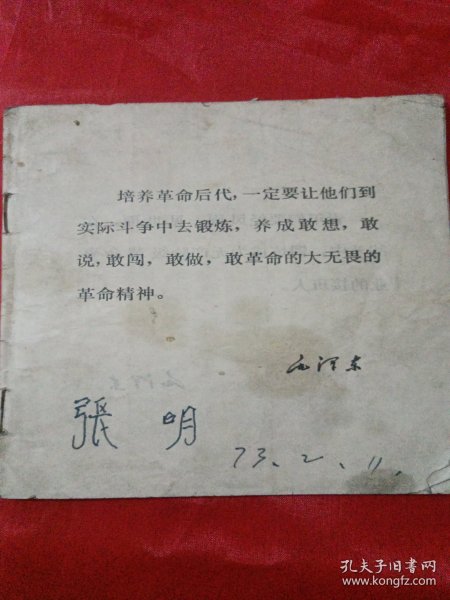 培养革命后代，一定要让他们到
实际斗争中去锻炼，养成敢想，敢
说，敢闯，敢做，敢革命的大无畏的
革命精神。
毛泽东
張 明
73.2.11.
孔夫子旧书网
www.kongfz.com